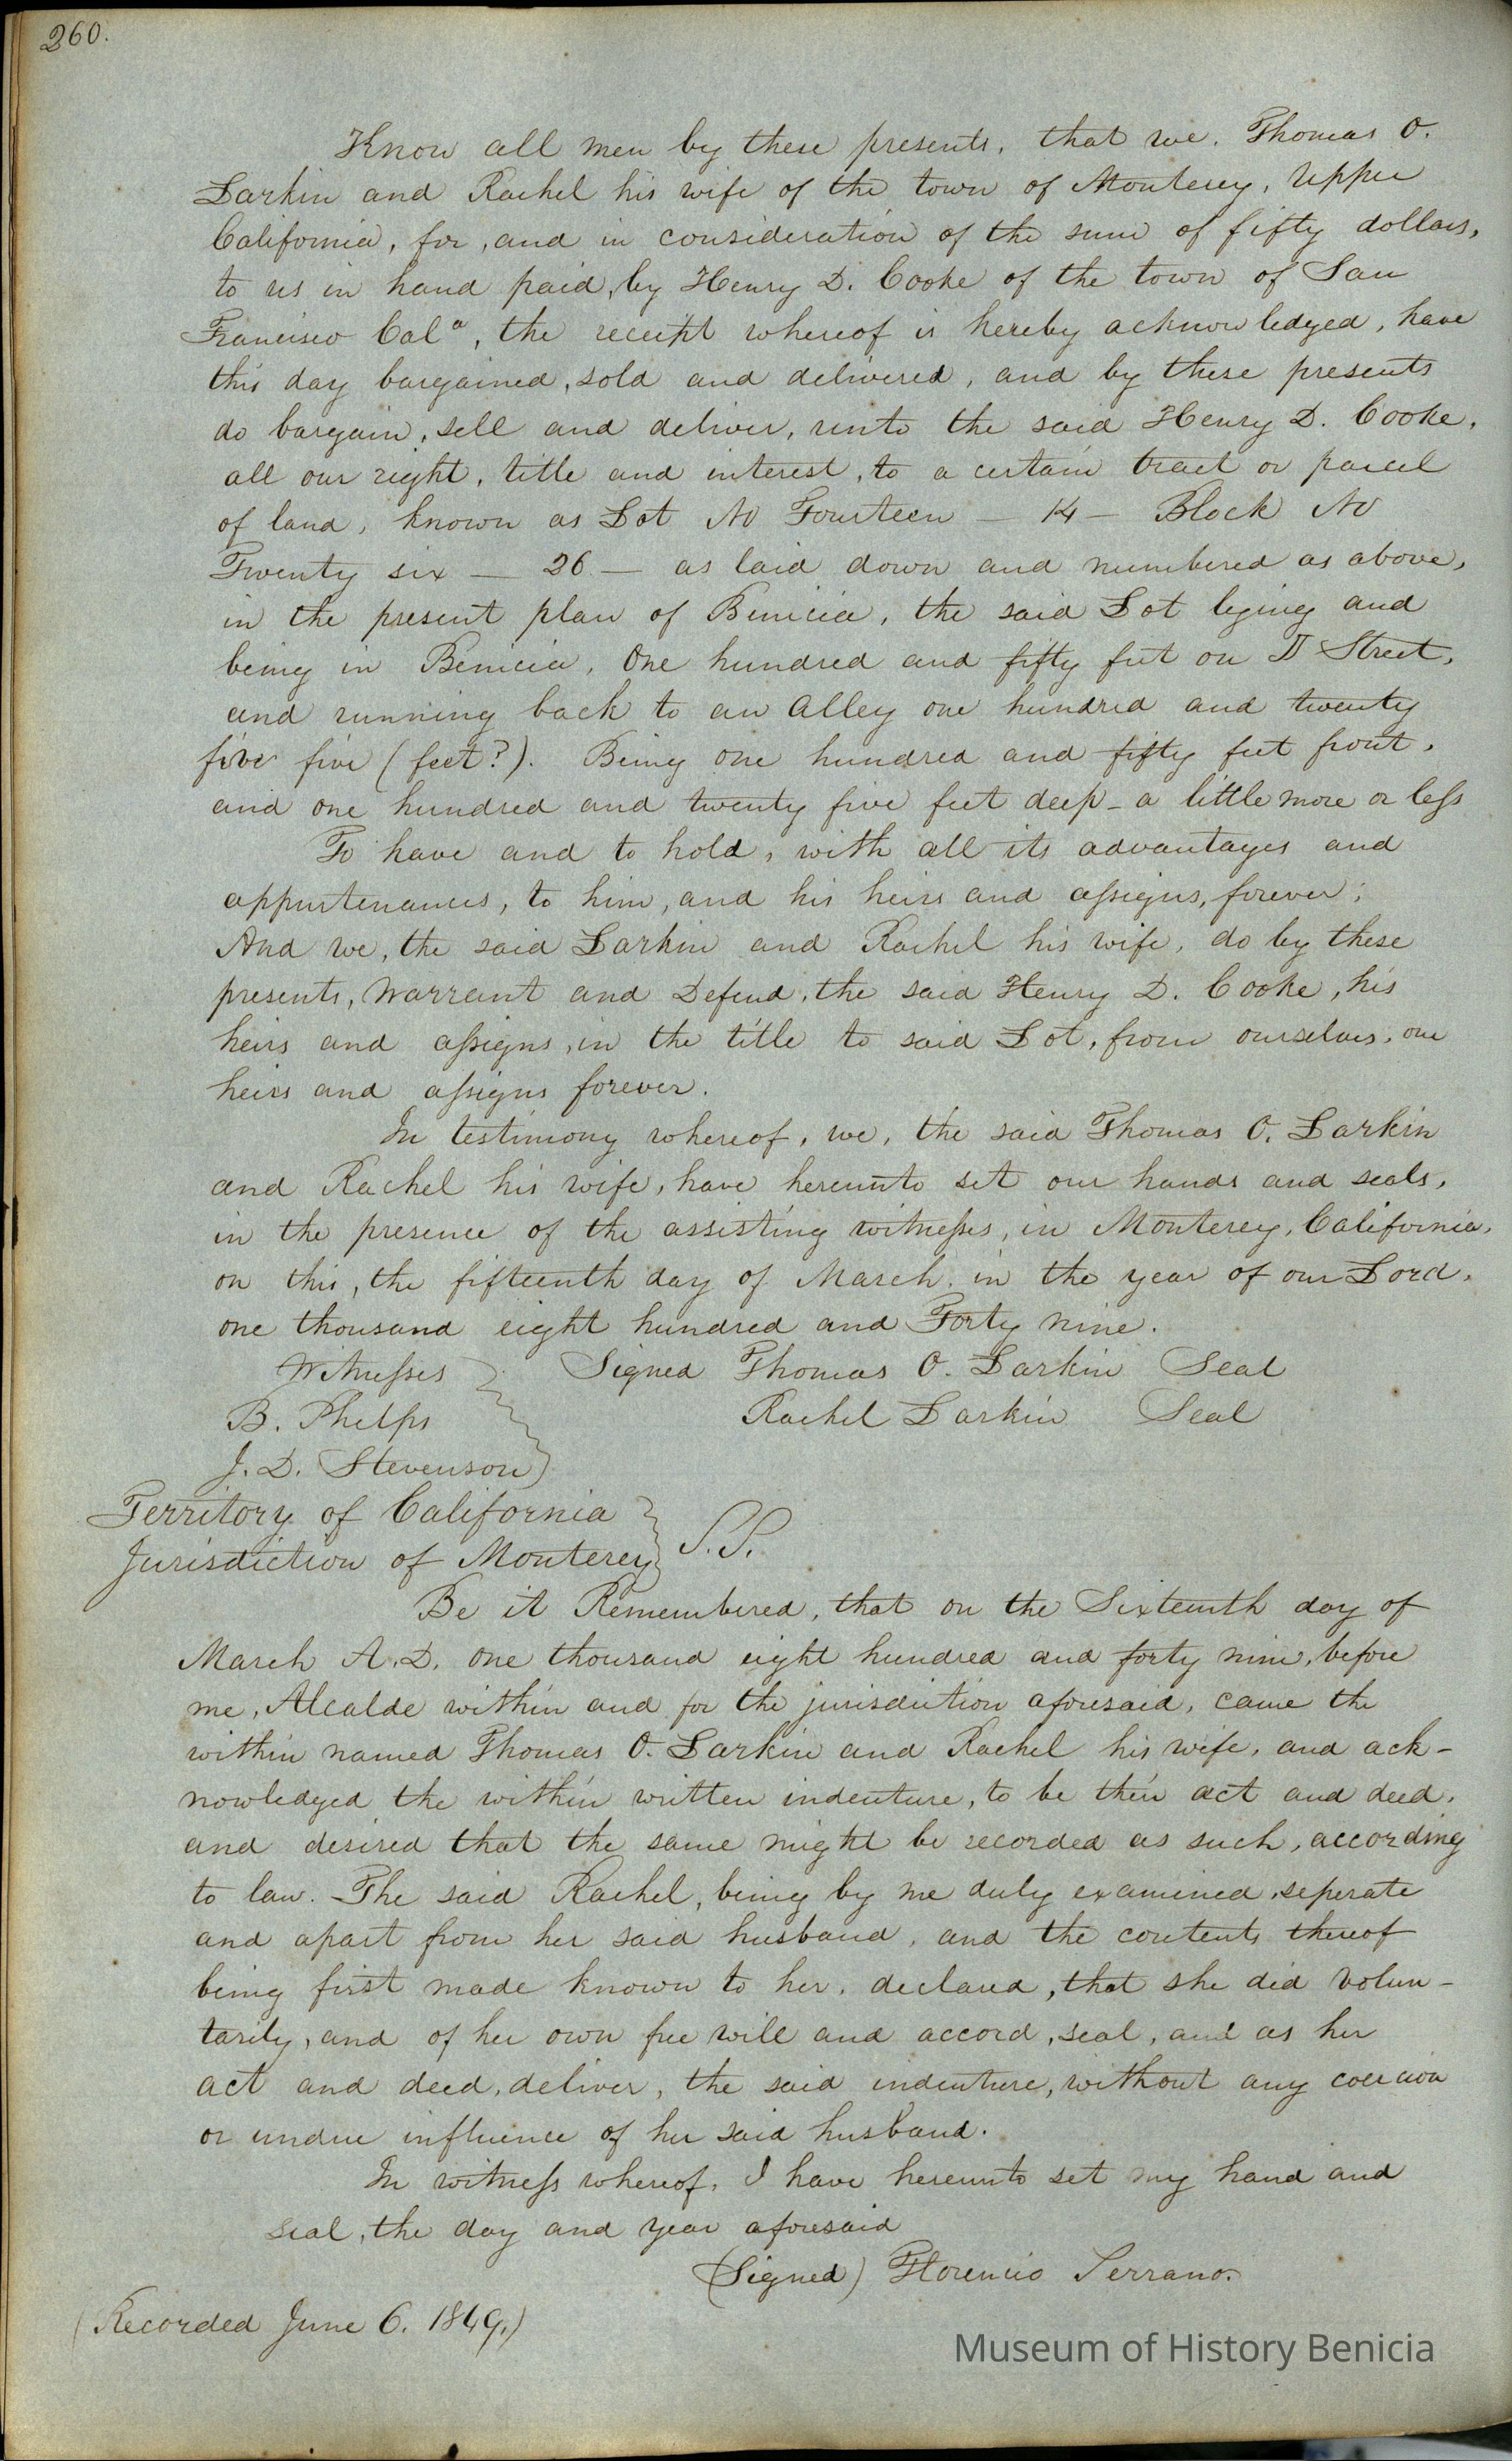 260.
Know all men by these presents, that we, Thomas O.
Larkin and Rachel his wife of the town of Monterey, Upper
California, for, and in consideration of the sum of fifty dollars,
to us in hand paid, by Henry D. Cooke of the town of San
Francisco Calª, the receipt whereof is hereby acknowledged, have
this day bargained, sold and delivered, and by these presents
do bargain, sell and deliver, unto the said Henry D. Cooke,
all our right, title and interest, to a certain tract or parcel
of land, known as Lot No Fourteen — 14 — Block No
Twenty six — 26 — as laid down and numbered as above,
in the present plan of Benicia, the said Lot lying and
being in Benicia, One hundred and fifty feet on D Street,
and running back to an Alley one hundred and twenty
five five (feet?). Being one hundred and fifty feet front,
and one hundred and twenty five feet deep - a little more or less
To have and to hold, with all its advantages and
appurtenances, to him, and his heirs and assigns, forever;
And we, the said Larkin and Rachel his wife, do by these
presents, Warrant and Defend, the said Henry D. Cooke, his
heirs and assigns, in the title to said Lot, from ourselves, our
heirs and assigns forever.
In testimony whereof, we, the said Thomas O. Larkin
and Rachel his wife, have hereunto set our hands and seals,
in the presence of the assisting witnesses, in Monterey, California,
on this, the fifteenth day of March, in the year of our Lord,
one thousand eight hundred and Forty nine.
Witnesses Signed Thomas O. Larkin Seal
B. Phelps Rachel Larkin Seal
J. D. Stevenson
Territory of California
Jurisdiction of Monterey } S.S.
Be it Remembered, that on the Sixteenth day of
March A.D. one thousand eight hundred and forty nine, before
me, Alcalde within and for the jurisdiction aforesaid, came the
within named Thomas O. Larkin and Rachel his wife, and ack-
nowledged the within written indenture, to be their act and deed,
and desired that the same might be recorded as such, according
to law. The said Rachel, being by me duly examined, seperate
and apart from her said husband, and the contents thereof
being first made known to her, declared, that she did volun-
tarily, and of her own free will and accord, seal, and as her
act and deed, deliver, the said indenture, without any coercion
or undue influence of her said husband.
In witness whereof, I have hereunto set my hand and
seal, the day and year aforesaid
(Signed) Florencio Serrano.
(Recorded June 6. 1849.)
Museum of History Benicia